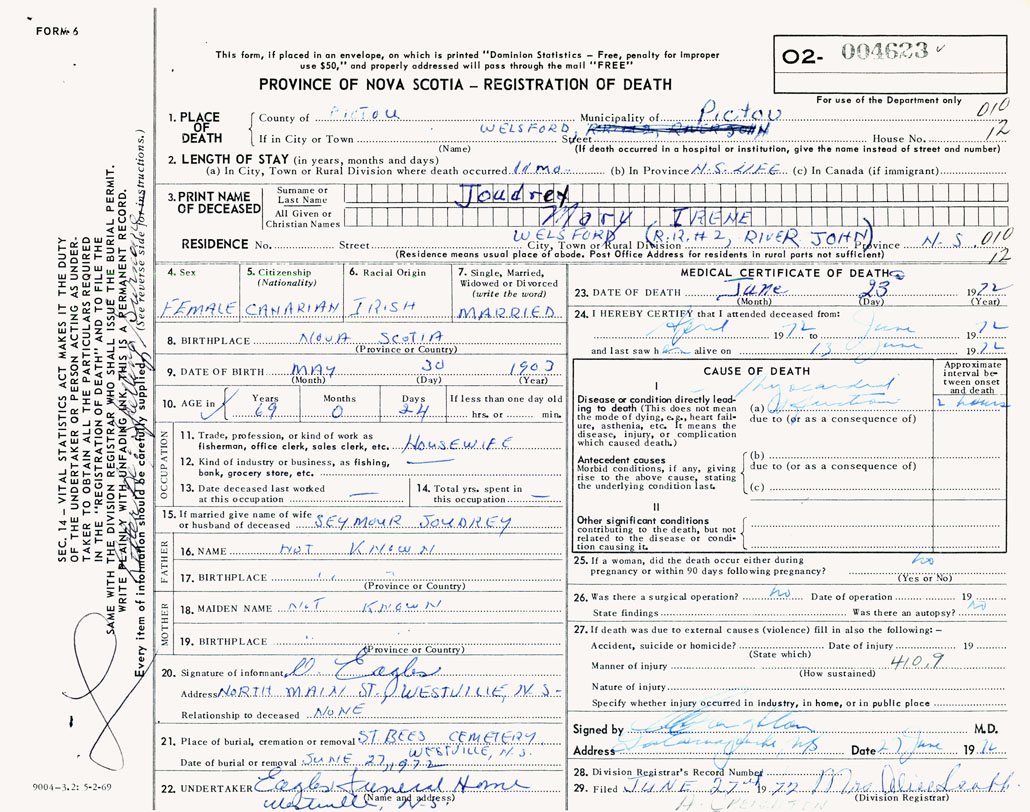 FORM 6
This form, if placed in an envelope, on which is printed "Dominion Statistics – Free, penalty for improper
use $50," and properly addressed will pass through the mail "FREE"
PROVINCE OF NOVA SCOTIA – REGISTRATION OF DEATH
O2- 004623
For use of the Department only
1. PLACE OF DEATH County of PICTOU Municipality of Pictou 010
WELSFORD, R.R. #2, RIVER JOHN 12
If in City or Town Street House No.
(Name) (If death occurred in a hospital or institution, give the name instead of street and number)
2. LENGTH OF STAY (in years, months and days)
(a) In City, Town or Rural Division where death occurred 11 mo- (b) In Province N.S. LIFE (c) In Canada (if immigrant)
3. PRINT NAME OF DECEASED Surname or Last Name Joudrey
All Given or Christian Names Mary IRENE
WELSFORD (R.R.#2, RIVER JOHN)
RESIDENCE No. Street City, Town or Rural Division Province N.S 010
(Residence means usual place of abode. Post Office Address for residents in rural parts not sufficient) 12
4. Sex 5. Citizenship (Nationality) 6. Racial Origin 7. Single, Married, Widowed or Divorced (write the word)
FEMALE CANARIAN IRISH MARRIED
8. BIRTHPLACE NOVA SCOTIA
(Province or Country)
9. DATE OF BIRTH MAY 30 1903
(Month) (Day) (Year)
10. AGE in Years Months Days If less than one day old
69 0 24 hrs. or min.
OCCUPATION
11. Trade, profession, or kind of work as fisherman, office clerk, sales clerk, etc. HOUSEWIFE
12. Kind of industry or business, as fishing, bank, grocery store, etc. —
13. Date deceased last worked at this occupation —
14. Total yrs. spent in this occupation —
15. If married give name of wife or husband of deceased SEYMOUR JOUDREY
FATHER
16. NAME NOT KNOWN
17. BIRTHPLACE " "
(Province or Country)
MOTHER
18. MAIDEN NAME NOT KNOWN
19. BIRTHPLACE "
(Province or Country)
20. Signature of informant Eagles
Address NORTH MAIN ST., WESTVILLE, N.S-
Relationship to deceased NONE
21. Place of burial, cremation or removal ST BEES CEMETERY
WESTVILLE, N.S.
Date of burial or removal JUNE 27, 1972
22. UNDERTAKER Eagles Funeral Home
(Name and address)
Westville, N-S
MEDICAL CERTIFICATE OF DEATH
23. DATE OF DEATH June 23 1972
(Month) (Day) (Year)
24. I HEREBY CERTIFY that I attended deceased from:
April 1972 to June 1972
and last saw her alive on 13 June 1972
CAUSE OF DEATH
Approximate interval between onset and death
I
Disease or condition directly leading to death (This does not mean the mode of dying, e.g., heart failure, asthenia, etc. It means the disease, injury, or complication which caused death.)
(a) Myocardial Infarction 2 hours
due to (or as a consequence of)
Antecedent causes
Morbid conditions, if any, giving rise to the above cause, stating the underlying condition last.
(b)
due to (or as a consequence of)
(c)
II
Other significant conditions contributing to the death, but not related to the disease or condition causing it.
25. If a woman, did the death occur either during pregnancy or within 90 days following pregnancy? no
(Yes or No)
26. Was there a surgical operation? no Date of operation 19
State findings Was there an autopsy? no
27. If death was due to external causes (violence) fill in also the following: –
Accident, suicide or homicide? Date of injury 19
(State which)
Manner of injury 410.9
(How sustained)
Nature of injury
Specify whether injury occurred in industry, in home, or in public place
Signed by Creighton M.D.
Address Tatamagouche NS Date 27 June 1972
28. Division Registrar's Record Number
29. Filed JUNE 27th 1972 Mrs
(Division Registrar)
SEC. 14 – VITAL STATISTICS ACT MAKES IT THE DUTY
OF THE UNDERTAKER OR PERSON ACTING AS UNDER-
TAKER TO OBTAIN ALL THE PARTICULARS REQUIRED
IN THE "REGISTRATION OF DEATH" AND TO FILE THE
SAME WITH THE DIVISION REGISTRAR WHO SHALL ISSUE THE BURIAL PERMIT.
WRITE PLAINLY WITH UNFADING INK, THIS IS A PERMANENT RECORD.
Every item of information should be carefully supplied. (See reverse side for instructions.)
9004–3.2: 5-2-69